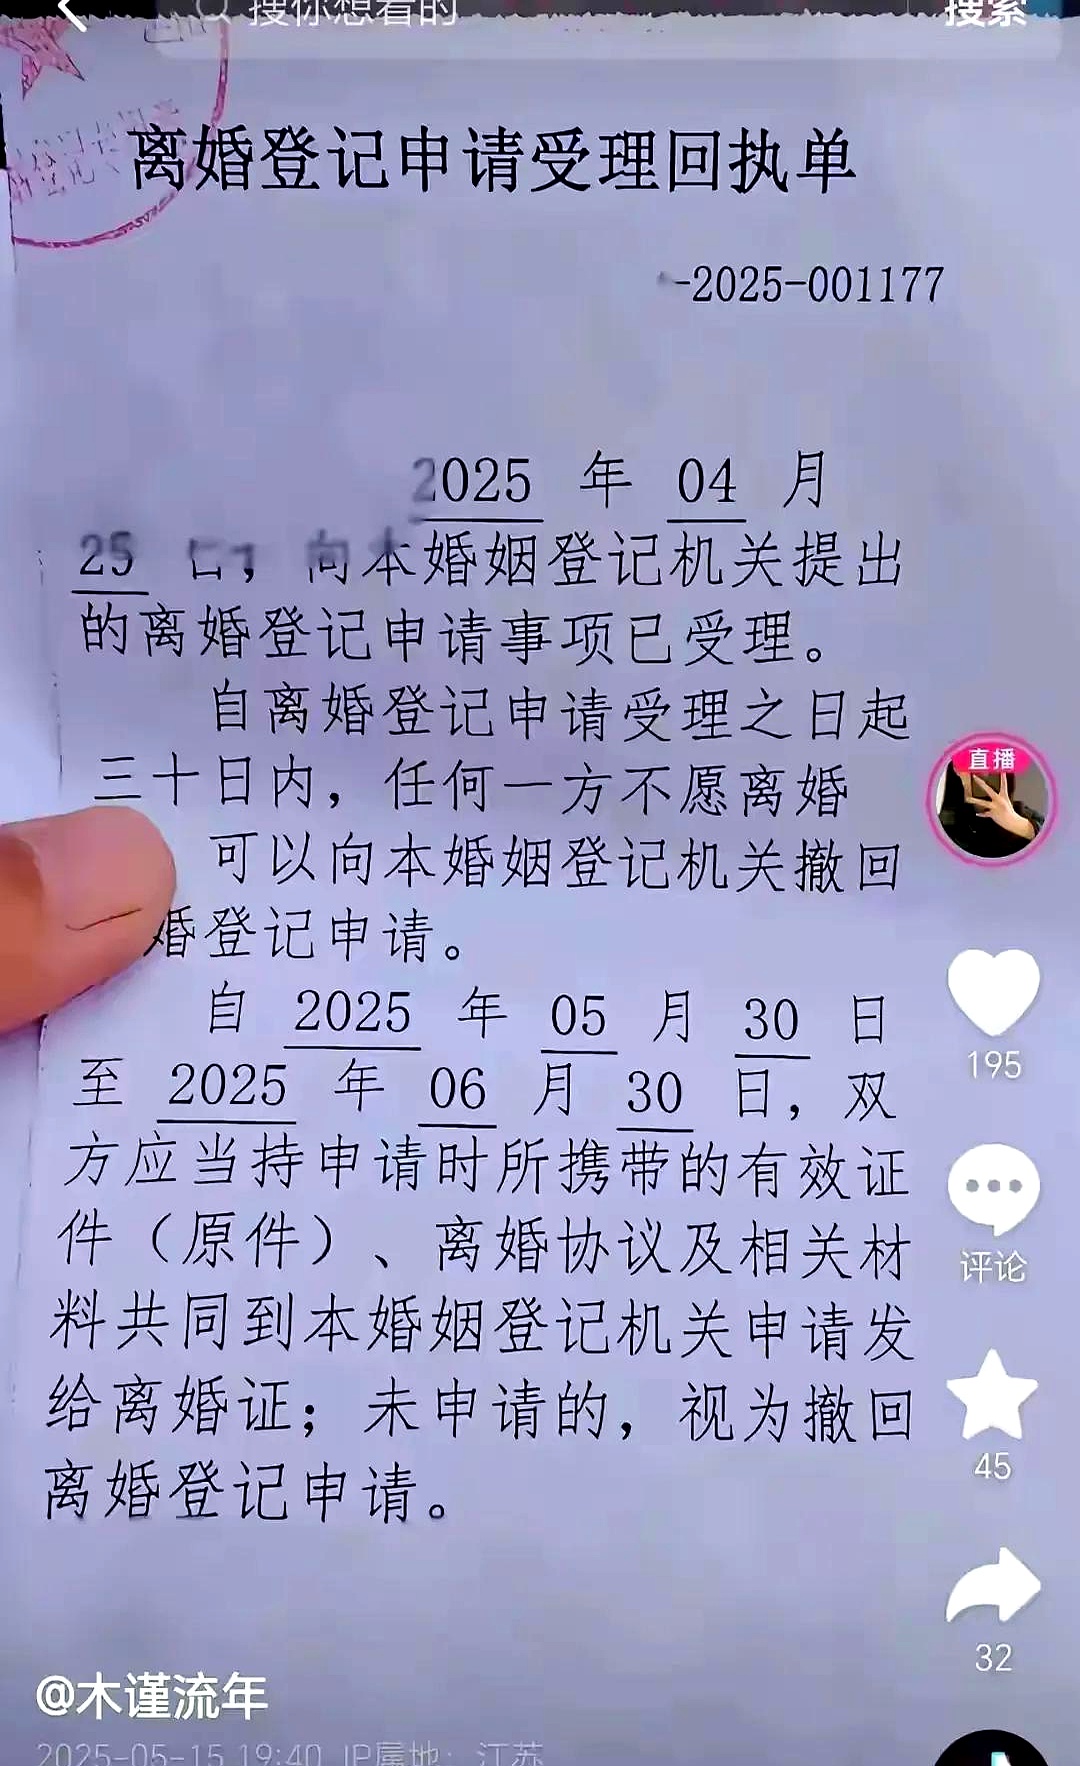 搜你想看的
搜索
离婚登记申请受理回执单
-2025-001177
2025 年 04 月
25 日，向本婚姻登记机关提出
的离婚登记申请事项已受理。
自离婚登记申请受理之日起
三十日内，任何一方不愿离婚
可以向本婚姻登记机关撤回
婚登记申请。
自 2025 年 05 月 30 日
至 2025 年 06 月 30 日，双
方应当持申请时所携带的有效证
件（原件）、离婚协议及相关材
料共同到本婚姻登记机关申请发
给离婚证；未申请的，视为撤回
离婚登记申请。
直播
195
评论
45
32
@木谨流年
2025-05-15 19:40 IP属地：江苏